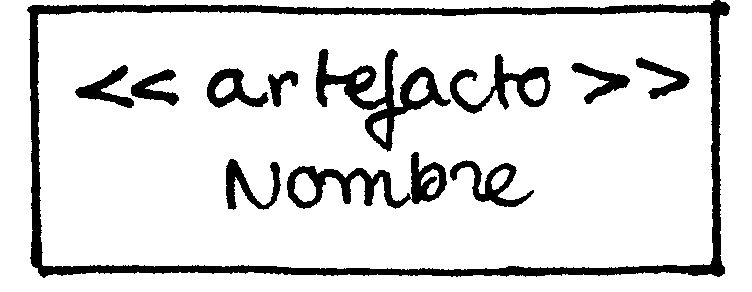 << artefacto >>
Nombre